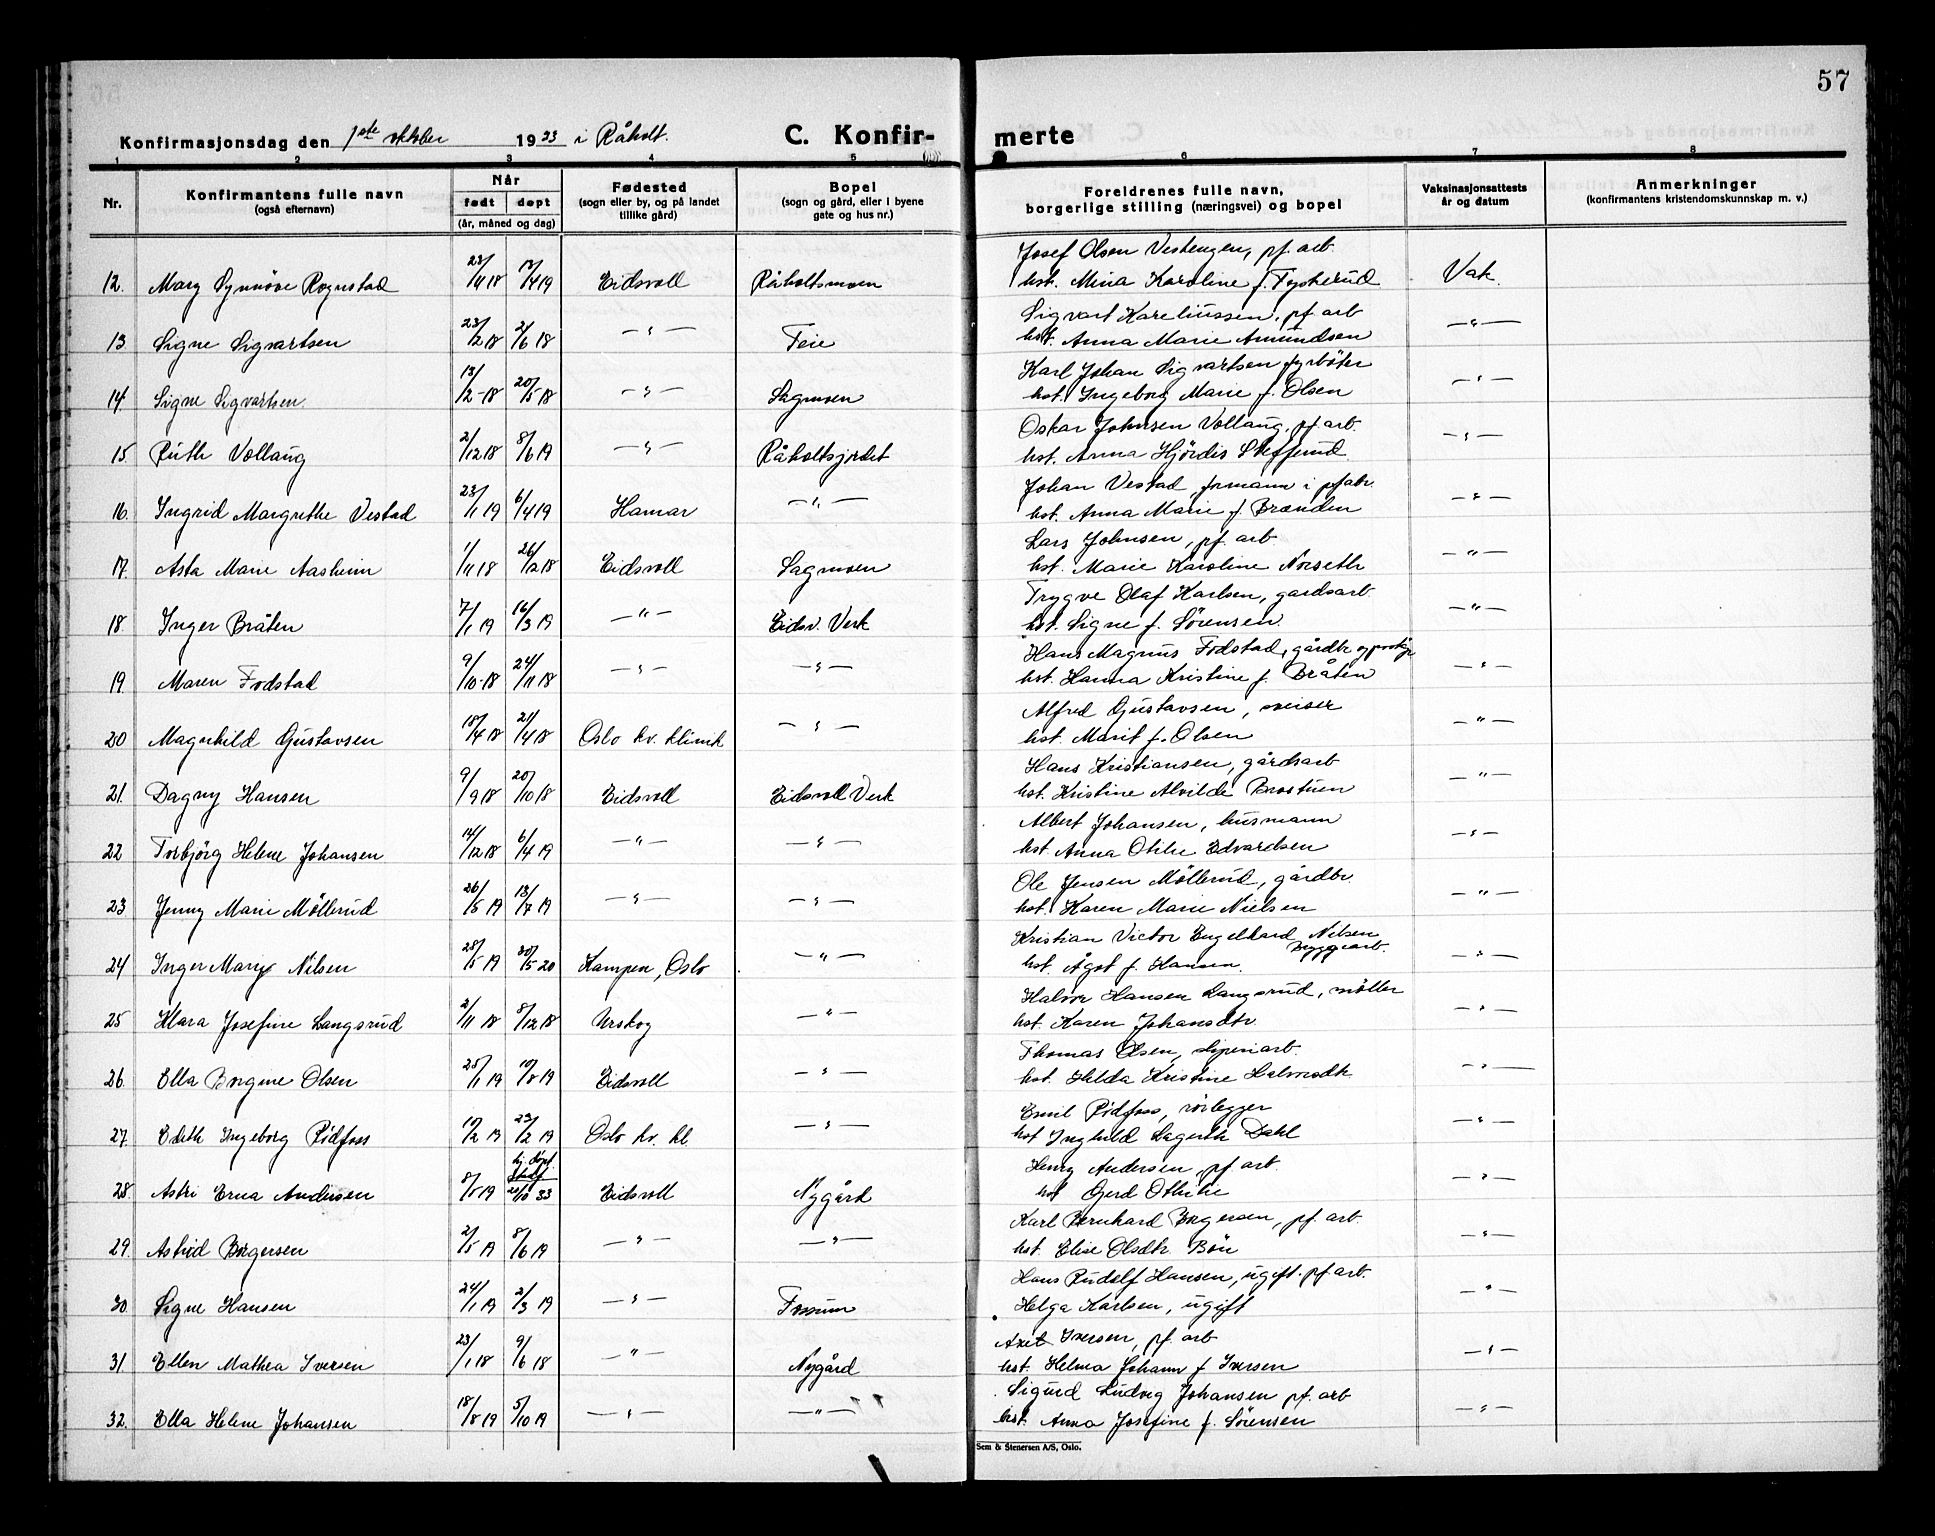 57
Konfirmasjonsdag den 1ste oktober 1933 i Råholt. C. Konfir- merte
1 2 3 4 5 6 7 8
Nr. Konfirmantens fulle navn (også efternavn) Når født døpt (år, måned og dag) Fødested (sogn eller by, og på landet tillike gård) Bopel (sogn og gård, eller i byene gate og hus nr.) Foreldrenes fulle navn, borgerlige stilling (næringsvei) og bopel Vaksinasjonsattests år og datum Anmerkninger (konfirmantens kristendomskunnskap m. v.)
Josef Olsen Vestengen, pf. arb.
12. Mary Synnöve Rognstad 23/11 18 7/4 19 Eidsvoll Råholtsmoen hst. Mina Karoline f. Tyskerud Vak.
Sigvart Kareliussen, pf. arb
13 Signe Sigvartsen 23/2 18 2/6 18 —"— Feie hst. Anna Marie Amundsen —"—
Karl Johan Sigvartsen fyrböter
14. Signe Sigvartsen. 13/2-18 20/5-18 —"— Sagmoen hst. Ingeborg Marie f. Olsen —"—
Oskar Johnsen Vollaug, pf. arb.
15. Ruth Vollaug 2/12 18 8/6 19 —"— Råholtsjordet hst. Anna Hjördis —"—
Johan Vestad, formann i pfabr.
16. Ingrid Margrethe Vestad 23/1 19 6/4 19 Hamar —"— hst. Anna Marie f. Brænden —"—
Lars Johnsen, pf. arb.
17. Asta Marie Aasheim 1/11 18 26/12 18 Eidsvoll Sagmoen hst. Marie Karoline Norseth —"—
Trygve Olaf Karlsen, gardsarb.
18. Inger Bråten 7/1 19 16/3 19 —"— Eidsv. Verk hst. Signe f. Sörensen. —"—
Hans Magnus Fodstad, gårdbr og
19. Maren Fodstad 9/10-18 24/11 18 —"— —"— hst. Hanna Kristine f. Bråten —"—
Alfred Gustavsen, sveiser
20 Magnhild Gustavsen 10/4 18 21/4 18 Oslo kv. klinik —"— hst. Marit f. Olsen —"—
Hans Kristiansen, gårdsarb
21. Dagny Hansen 9/9 18 20/10 18 Eidsvoll Eidsvoll Verk hst. Kristine Alvilde Brostuen —"—
Albert Johansen, husmann
22 Torbjörg Helene Johansen 14/12 18 6/4 19 —"— —"— hst Anna Otilie Edvardsen —"—
Ole Jensen Möllerud, gårdbr.
23 Jenny Marie Möllerud 26/5 19 13/7 19 —"— —"— hst. Karen Marie Nielsen —"—
Kristian Victor Engelhard Nilsen
Byggearb.
24 Inger Mary Nilsen 28/5 19 30/5 20 Kampen, Oslo —"— hst. Ågot f. Hansen. —"—
Halvor Hansen Langsrud, möller
25 Klara Josefine Langsrud 2/11 18 8/12 18 Urskog —"— hst. Karen Johansdtr. —"—
Thomas Olsen, sliperiarb.
26. Ella Borgine Olsen 25/1 19 10/8 19 Eidsvoll —"— hst. Helda Kristine Halvorsdtr. —"—
Emil Rödfoss, rörlegger
27. Edith Ingeborg Rödfoss 10/2 19 23/2 19 Oslo kv. kl. —"— hst Inghild Lagerth Dahl —"—
hj. döpt
Henry Andersen, pf. arb.
28. Astri Erna Andersen 8/5 19 20/10 33 Eidsvoll Nygård hst Gerd Othilie —"—
Karl Bernhard Borgersen, pf. arb.
29. Astrid Borgersen 2/5 19 8/6 19 —"— —"— hst. Elise Olsdtr. Bön —"—
Hans Rudolf Hansen, ugift. pf arb.
30. Signe Hansen 24/1 19 2/3 19 —"— Fossum Helga Karlsen, ugift "
Axel Iversen, pf. arb
31. Ellen Mathea Iversen 23/1 18 9/6 18 —"— Nygård hst. Helma Johann f. Iversen —"—
Sigurd Ludvig Johansen pf. arb
32. Ella Helene Johansen 18/8 19 5/10 19 —"— —"— hst. Anna Josefine f. Sörensen —"—
Sem & Stenersen A/S, Oslo.